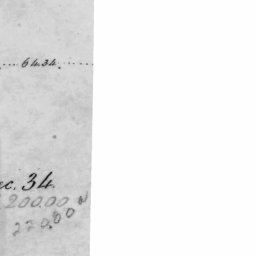 64.34.
c. 34.
200.00
220.00